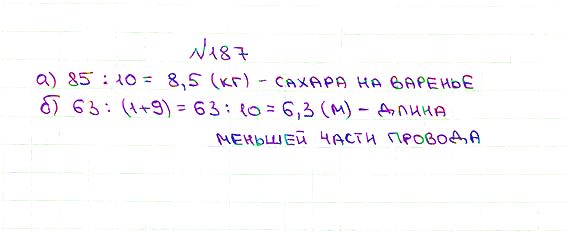 №187
а) 85 : 10 = 8,5 (кг) – сахара на варенье
б) 63 : (1+9) = 63 : 10 = 6,3 (м) – длина
меньшей части провода